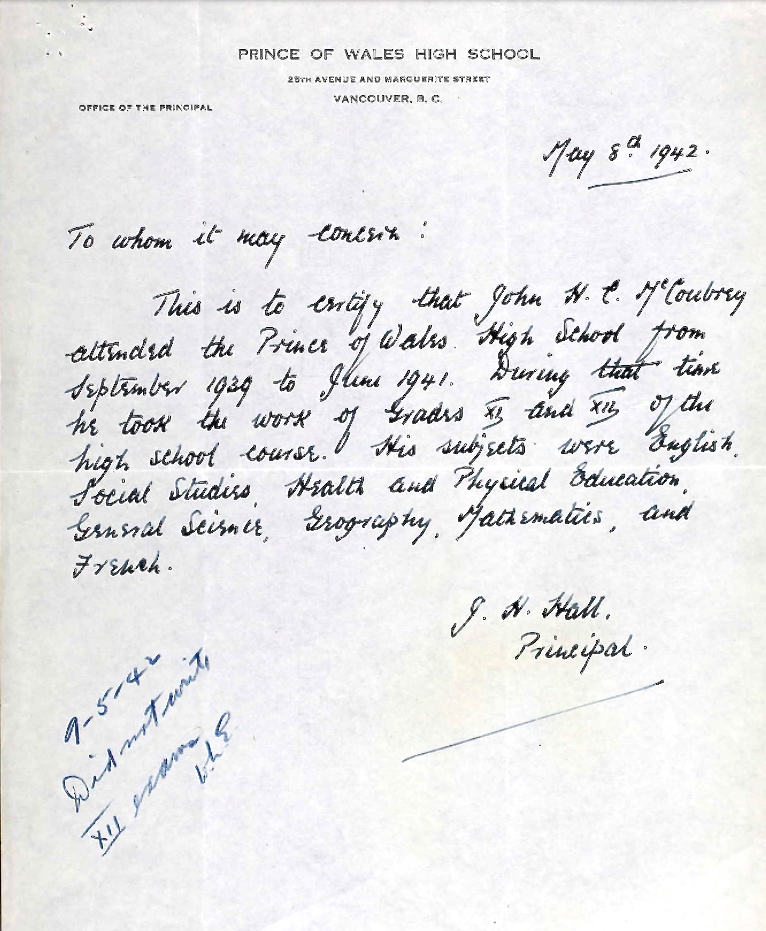 PRINCE OF WALES HIGH SCHOOL
25TH AVENUE AND MARGUERITE STREET
VANCOUVER, B. C.
OFFICE OF THE PRINCIPAL
May 8th 1942.
To whom it may concern:
This is to certify that John H. C. McCoubrey
attended the Prince of Wales High School from
September 1939 to June 1941. During that time
he took the work of Grades XI and XII of the
high school course. His subjects were English,
Social Studies, Health and Physical Education,
General Science, Geography, Mathematics, and
French.
J. H. Hall.
Principal.
9-5-42
Did not write
XII exams